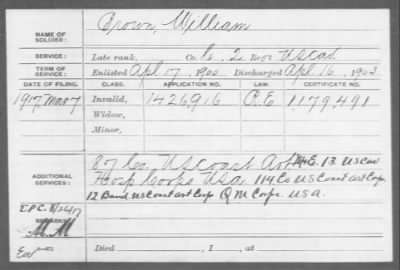 NAME OF SOLDIER: Brown, William
SERVICE: Late rank, Co. C. 2 Reg't US Cav.
TERM OF SERVICE: Enlisted Apl 17, 1900 Discharged Apl. 16, 1903
DATE OF FILING. CLASS. APPLICATION NO. LAW. CERTIFICATE NO.
1917 Mar 7 Invalid, 1426916 1179,491
Widow,
Minor,
87 Co. US Coast Art E. 13 US Cav
ADDITIONAL SERVICES: Hosp Corps USA. 114 Co US Coast art Corps
12 Band US Coast art Corp Q M Corps. U.S.A.
REMARKS
M M
Died , 1 , at